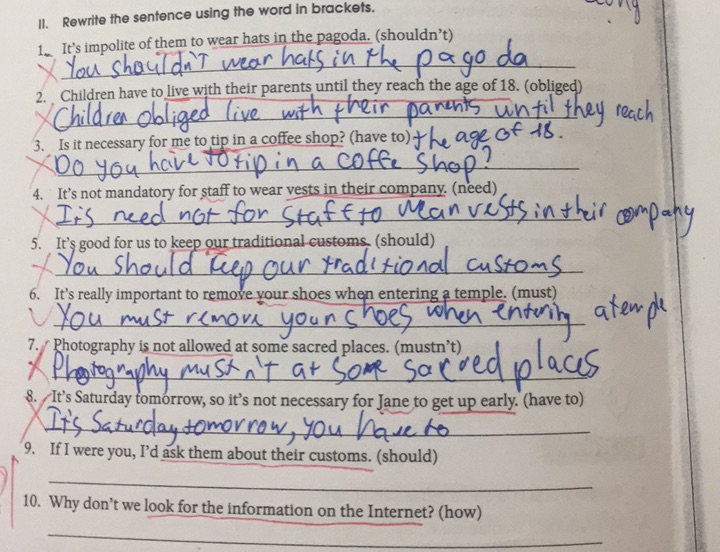 II. Rewrite the sentence using the word in brackets.
1. It's impolite of them to wear hats in the pagoda. (shouldn't)
You shouldn't wear hats in the pagoda
2. Children have to live with their parents until they reach the age of 18. (obliged)
Children obliged live with their parents until they reach
3. Is it necessary for me to tip in a coffee shop? (have to) the age of 18.
Do you have to tip in a coffe shop?
4. It's not mandatory for staff to wear vests in their company. (need)
It's need not for staff to wear vests in their company
5. It's good for us to keep our traditional customs. (should)
You should keep our traditional customs
6. It's really important to remove your shoes when entering a temple. (must)
You must remove your shoes when entering a temple
7. Photography is not allowed at some sacred places. (mustn't)
Photography mustn't at some sacred places
8. It's Saturday tomorrow, so it's not necessary for Jane to get up early. (have to)
It's Saturday tomorrow, you have to
9. If I were you, I'd ask them about their customs. (should)
10. Why don't we look for the information on the Internet? (how)